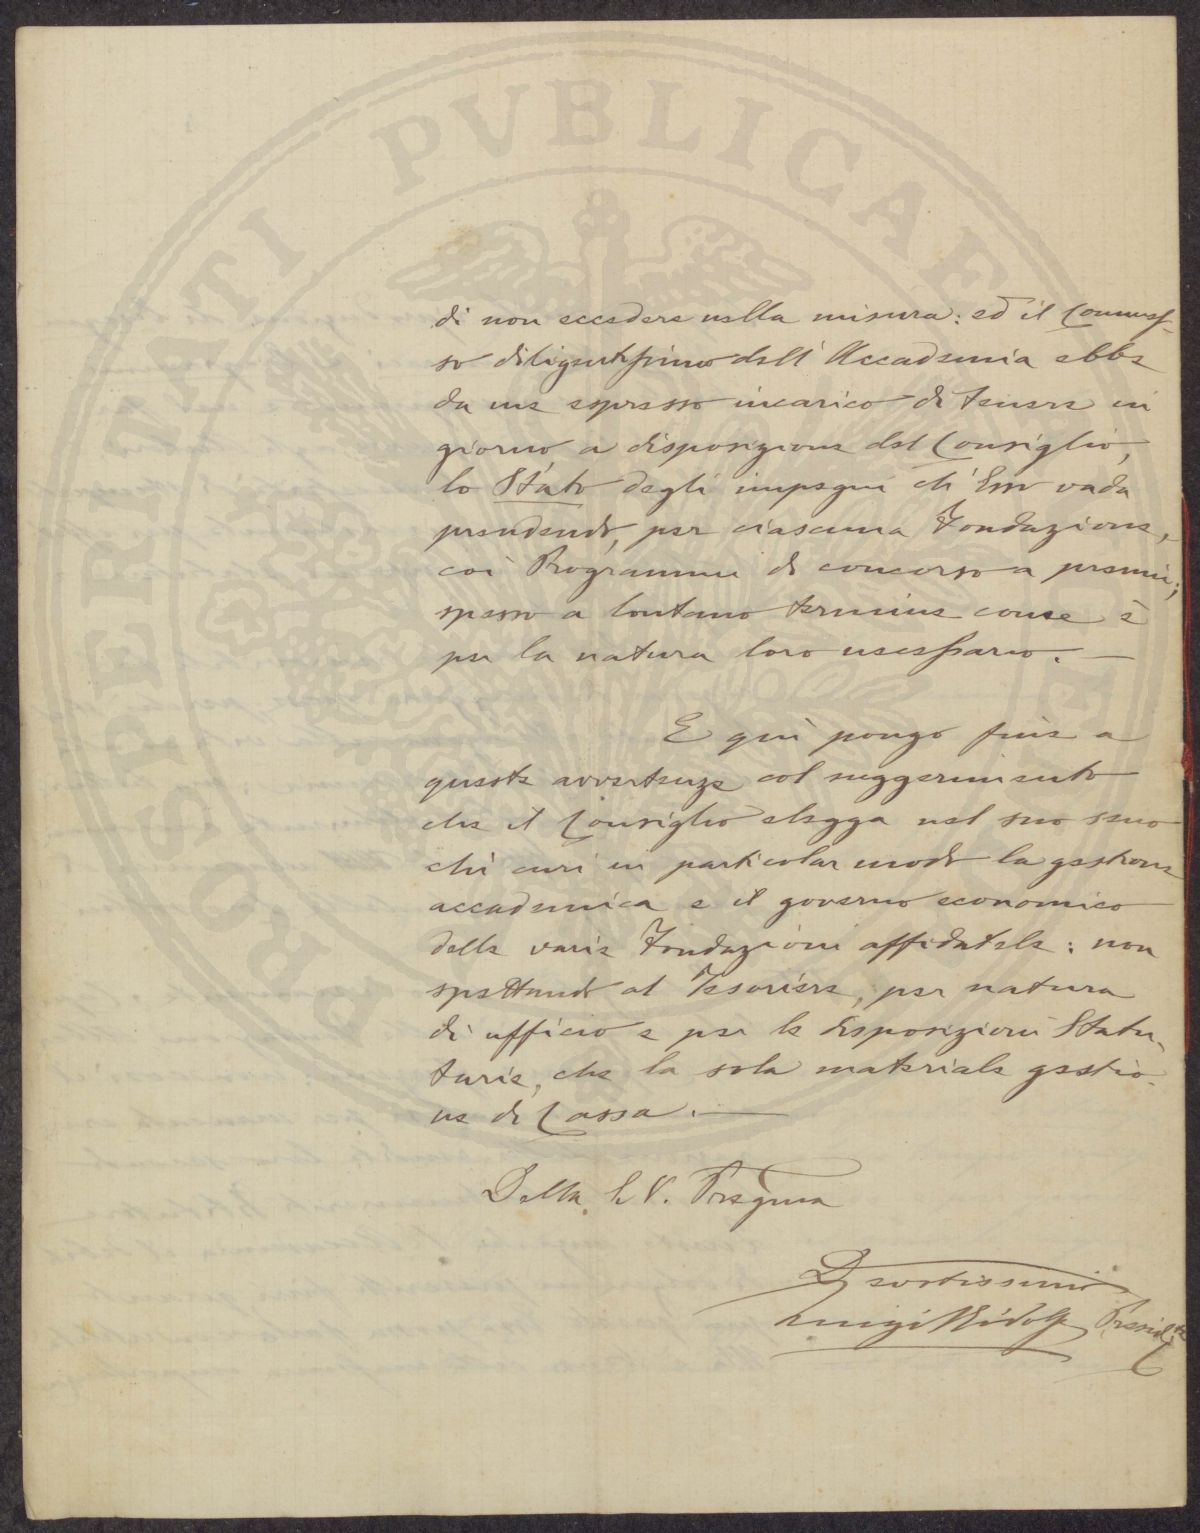 PROSPERITATI PVBLICAE
di non eccedere nella misura: ed il Commes-
so diligentissimo dell'Accademia ebbe
da me espresso incarico di tenere in
giorno a disposizione del Consiglio,
lo Stato degli impegni ch'Esso vada
prendendo, per ciascuna Fondazione,
coi Programmi di concorso a premi;
spesso a lontano termine come è
per la natura loro necessario. —
E qui pongo fine a
queste avvertenze col suggerimento
che il Consiglio elegga nel suo seno
chi curi in particolar modo la gestione
accademica e il governo economico
delle varie Fondazioni affidatele: non
spettando al Tesoriere, per natura
di ufficio e per le disposizioni Statu-
tarie, che la sola materiale gestio-
ne di Cassa. —
Della S. V. Pregma
Devotissimo
Luigi Ridolfi Presidte